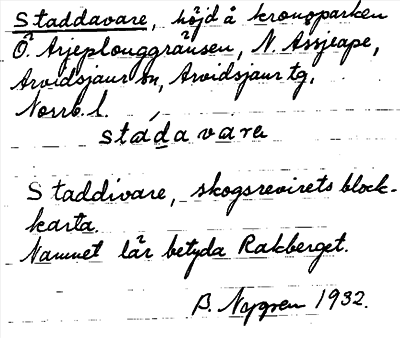 Staddavare, höjd å kronoparken
Ö. Arjeplouggränsen, N. Assjeape,
Arvidsjaur sn, Arvidsjaur tg,
Norrb. l.
stádavare
Staddivare, skogsrevirets block-
karta.
Namnet lär betyda Rakberget.
B. Nygren 1932.